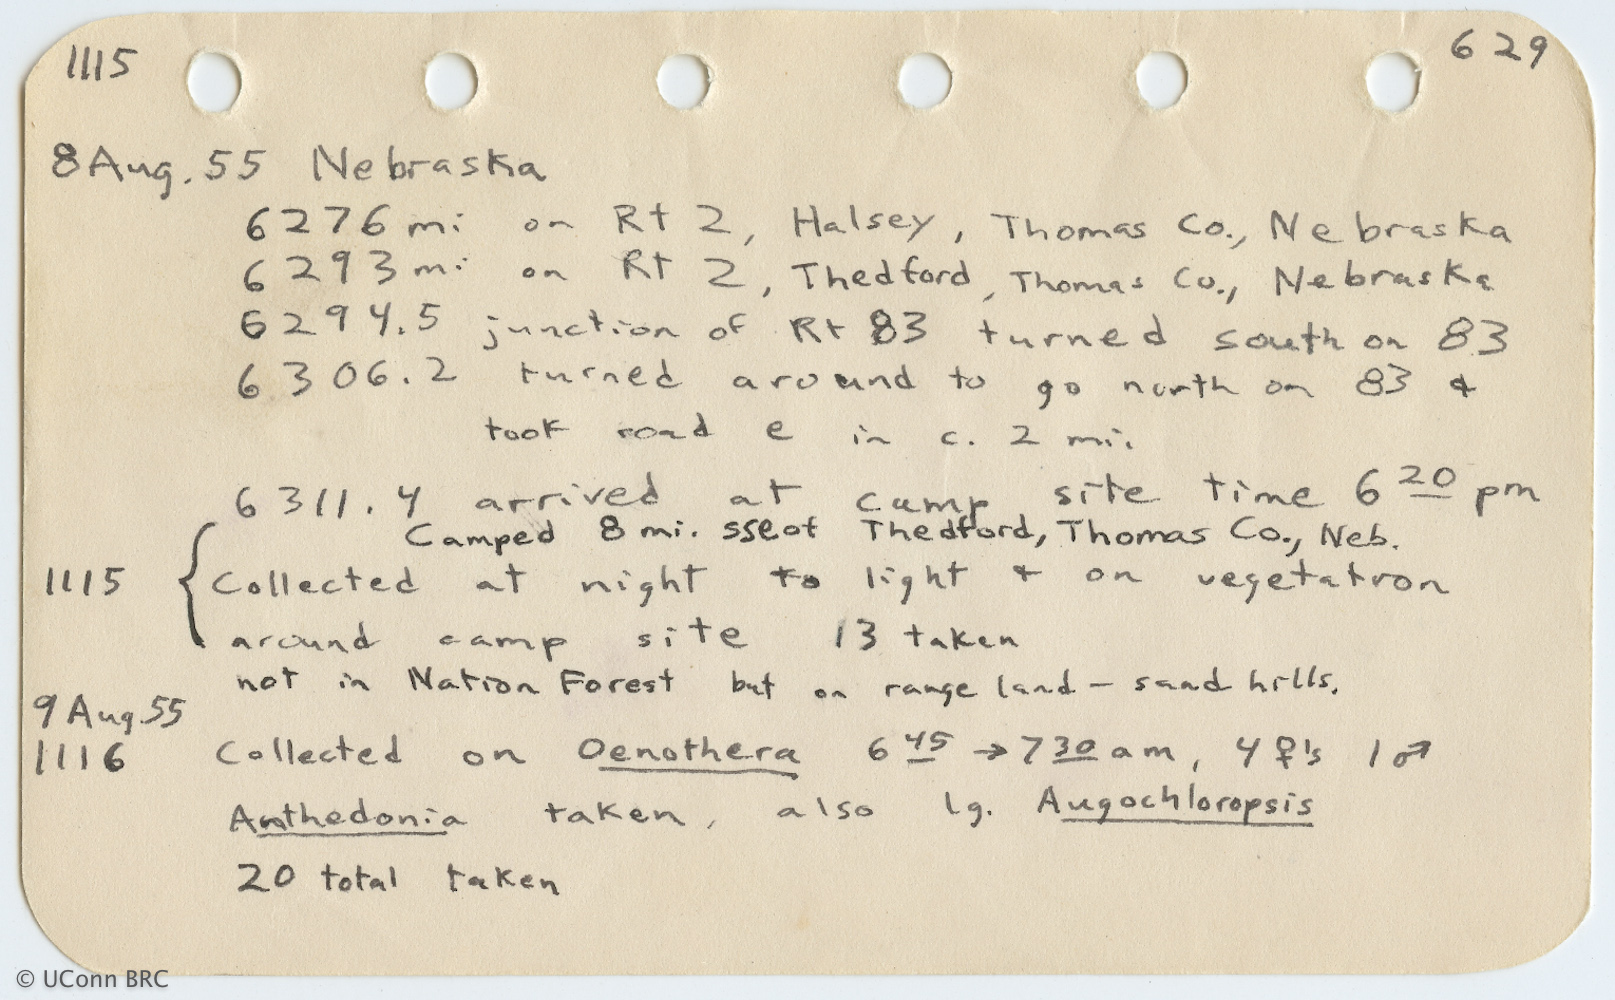 1115 629
8 Aug. 55 Nebraska
6276 mi on Rt 2, Halsey, Thomas Co., Nebraska
6293 mi on Rt 2, Thedford, Thomas Co., Nebraska
6294.5 junction of Rt 83 turned south on 83
6306.2 turned around to go north on 83 &
took road e in c. 2 mi.
6311.4 arrived at camp site time 6 20 pm
Camped 8 mi. sse of Thedford, Thomas Co., Neb.
1115 { Collected at night to light & on vegetation
around camp site 13 taken
not in Nation Forest but on range land – sand hills.
9 Aug. 55
1116 Collected on Oenothera 6 45 → 7 30 am, 4 ♀'s 1 ♂
Anthedonia taken, also lg. Augochloropsis
20 total taken
© UConn BRC